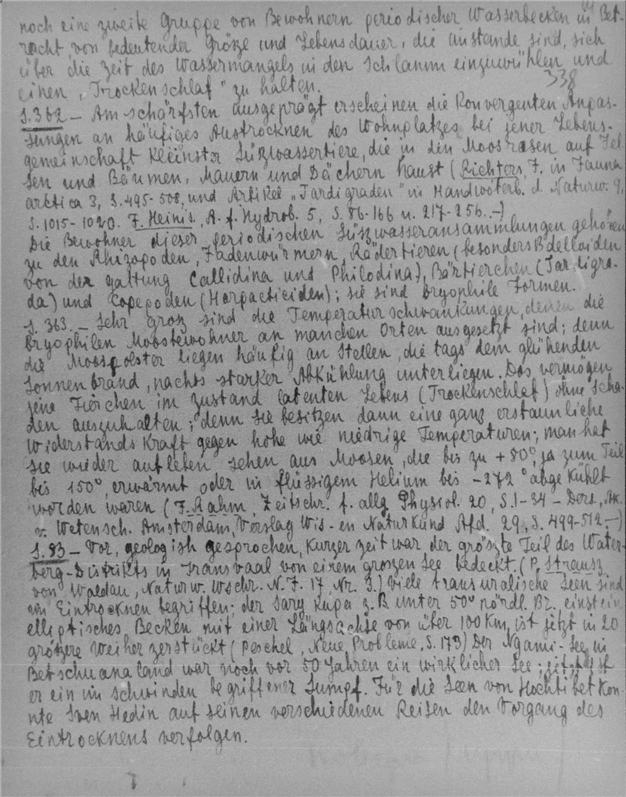 noch eine zweite Gruppe von Bewohnern periodischer Wasserbecken in Bet-
racht von bedeutender Grösze und Lebensdauer, die austande sind, sich
über die Zeit des Wassermangels in den Schlamm einzuwühlen und
einen „Trockenschlaf" zu halten.
338
S. 362 - Am schärfsten ausgeprägt erscheinen die Konvergenten Anpas-
sungen an häufiges Austrocknen des Wohnplatzes bei jener Lebens-
gemeinschaft Kleinster Süszwassertiere, die in den Moosrasen auf Fel-
sen und Bäumen, Mauern und Dächern haust (Richters, F. in Fauna
arctica 3, S. 495-508, und Artikel „Tardigraden" in Handwörterb. d. Naturw. 9,
S. 1015-1020. F. Heinis, A. f. Hydrob. 5, S. 86-166 u. 217-256.-)
Die Bewohner dieser periodischen Süszwasseransammlungen gehören
zu den Rhizopoden, Fadenwürmern, Rädertieren (besonders Bdelloiden
von der gattung Callidina und Philodina), Bärtierchen (Tardigra-
da) und Copepoden (Harpacticiden); sie sind bryophile Formen.
S. 363. - Sehr grosz sind die Temperaturschwankungen, denen die
bryophilen Moosbewohner an manchen Orten ausgesetzt sind; denn
die Moospolster liegen häufig an Stellen, die tags dem glühenden
Sonnenbrand, nachts starker Abkühlung unterliegen. Das vermögen
jene Tierchen im Zustand latenten Lebens (Trockenschlaf) ohne Scha-
den auszuhalten; denn sie besitzen dann eine ganz erstaunliche
Widerstands Kraft gegen hohe wie niedrige Temperaturen; man hat
sie wieder aufleben sehen aus Moosen, die bis zu +80°, ja zum Teil
bis 150° erwärmt oder in flüssigem Helium bis -272° abgekühlt
worden waren (F. Rahm, Zeitschr. f. allg Physiol. 20, S. 1-34 - Ders., Ak.
v. Wetensch. Amsterdam, Verslag Wis- en Naturkund Afd. 29, S. 499-512.-)
S. 83 - Vor, geologish gesprochen, Kurzer zeit war der gröszte Teil des Water-
berg-Distrikts in Transvaal von einem groszen See bedeckt. (P. Strausz
von Waldau, Naturw. Wschr. N. F. 17 Nr. 3.) Viele transuralische Seen sind
im Eintrocknen begriffen; der Sary Kupa z. B unter 50° nördl. Br., einst ein
elliptisches Becken mit einer Längsachse von über 100 Km, ist jetzt in 20
grötzere Weiher zerstückt (Peschel, Neue Probleme, S. 173) Der Ngami-See in
Betschuanaland war noch vor 50 Jahren ein wirklicher See; jetzt ist
er ein im Schwinden begriffener Sumpf. Für die Seen von Hochtibet Kon-
nte Sven Hedin auf seinen verschiedenen Reisen den Vorgang des
Eintrocknens verfolgen.